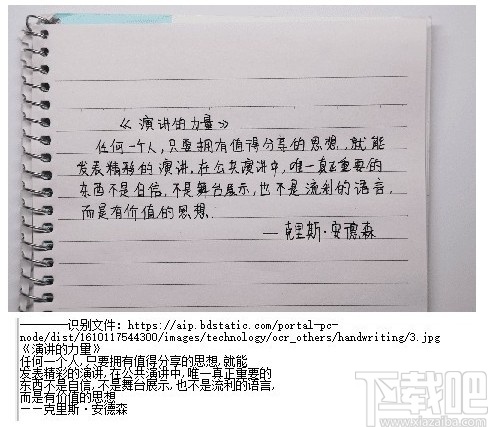 《演讲的力量》
任何一个人,只要拥有值得分享的思想,就能
发表精彩的演讲,在公共演讲中,唯一真正重要的
东西不是自信,不是舞台展示,也不是流利的语言,
而是有价值的思想.
——克里斯·安德森
————识别文件：https://aip.bdstatic.com/portal-pc-
node/dist/1610117544300/images/technology/ocr_others/handwriting/3.jpg
《演讲的力量》
任何一个人,只要拥有值得分享的思想,就能
发表精彩的演讲,在公共演讲中,唯一真正重要的
东西不是自信,不是舞台展示,也不是流利的语言,
而是有价值的思想
——克里斯·安德森
下载吧
www.xiazaiba.com